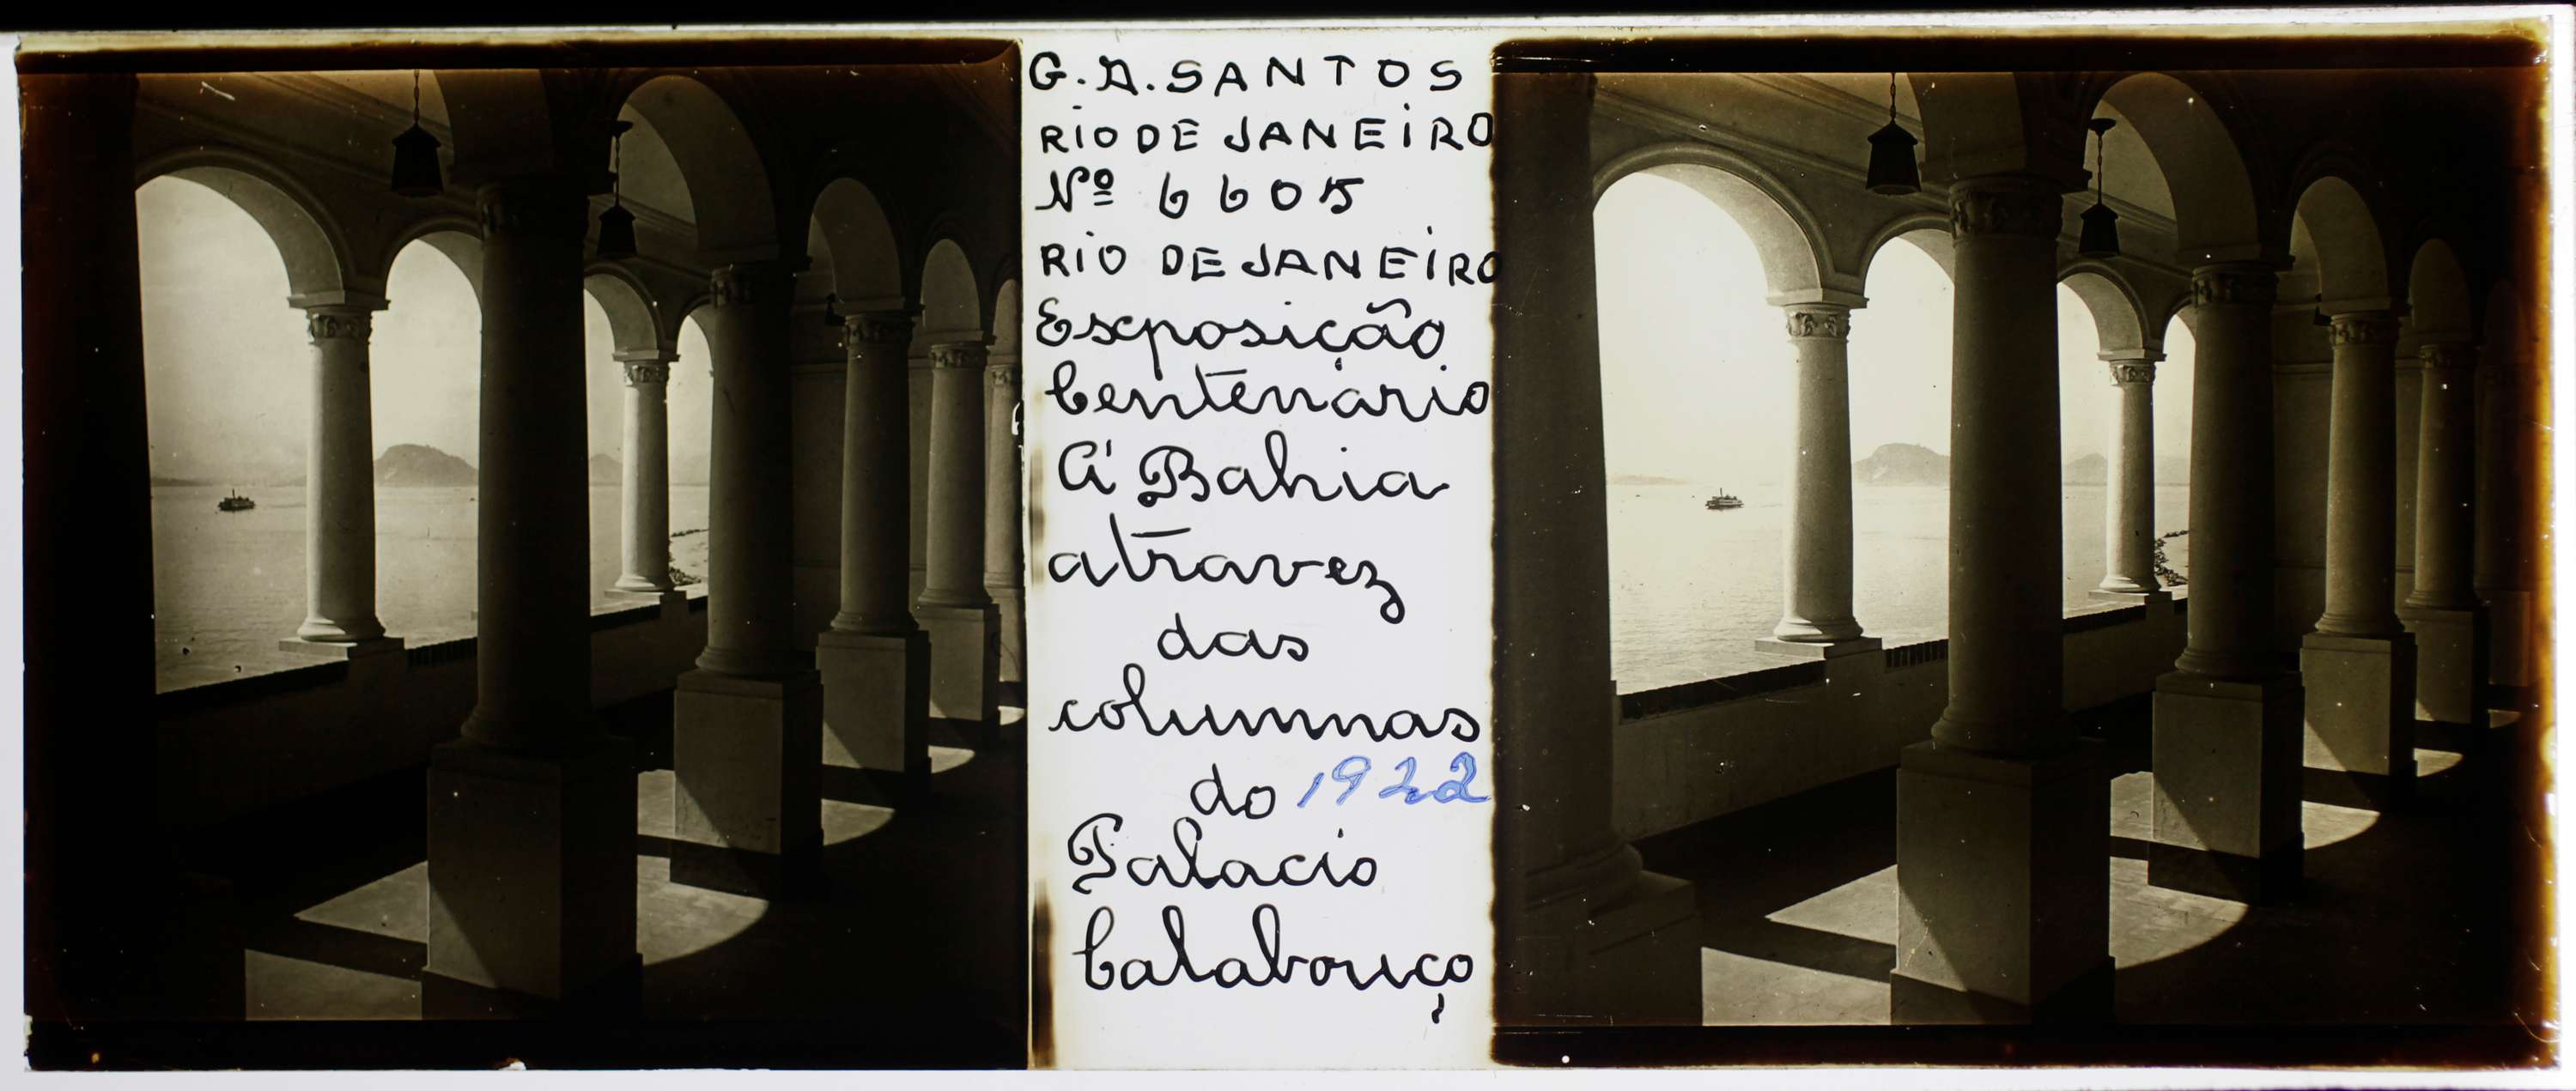 G. A. SANTOS
RIO DE JANEIRO
Nº 6605
RIO DE JANEIRO
Exposição
Centenario
A' Bahia
atravez
das
columnas
do 1922
Palacio
Calabouço